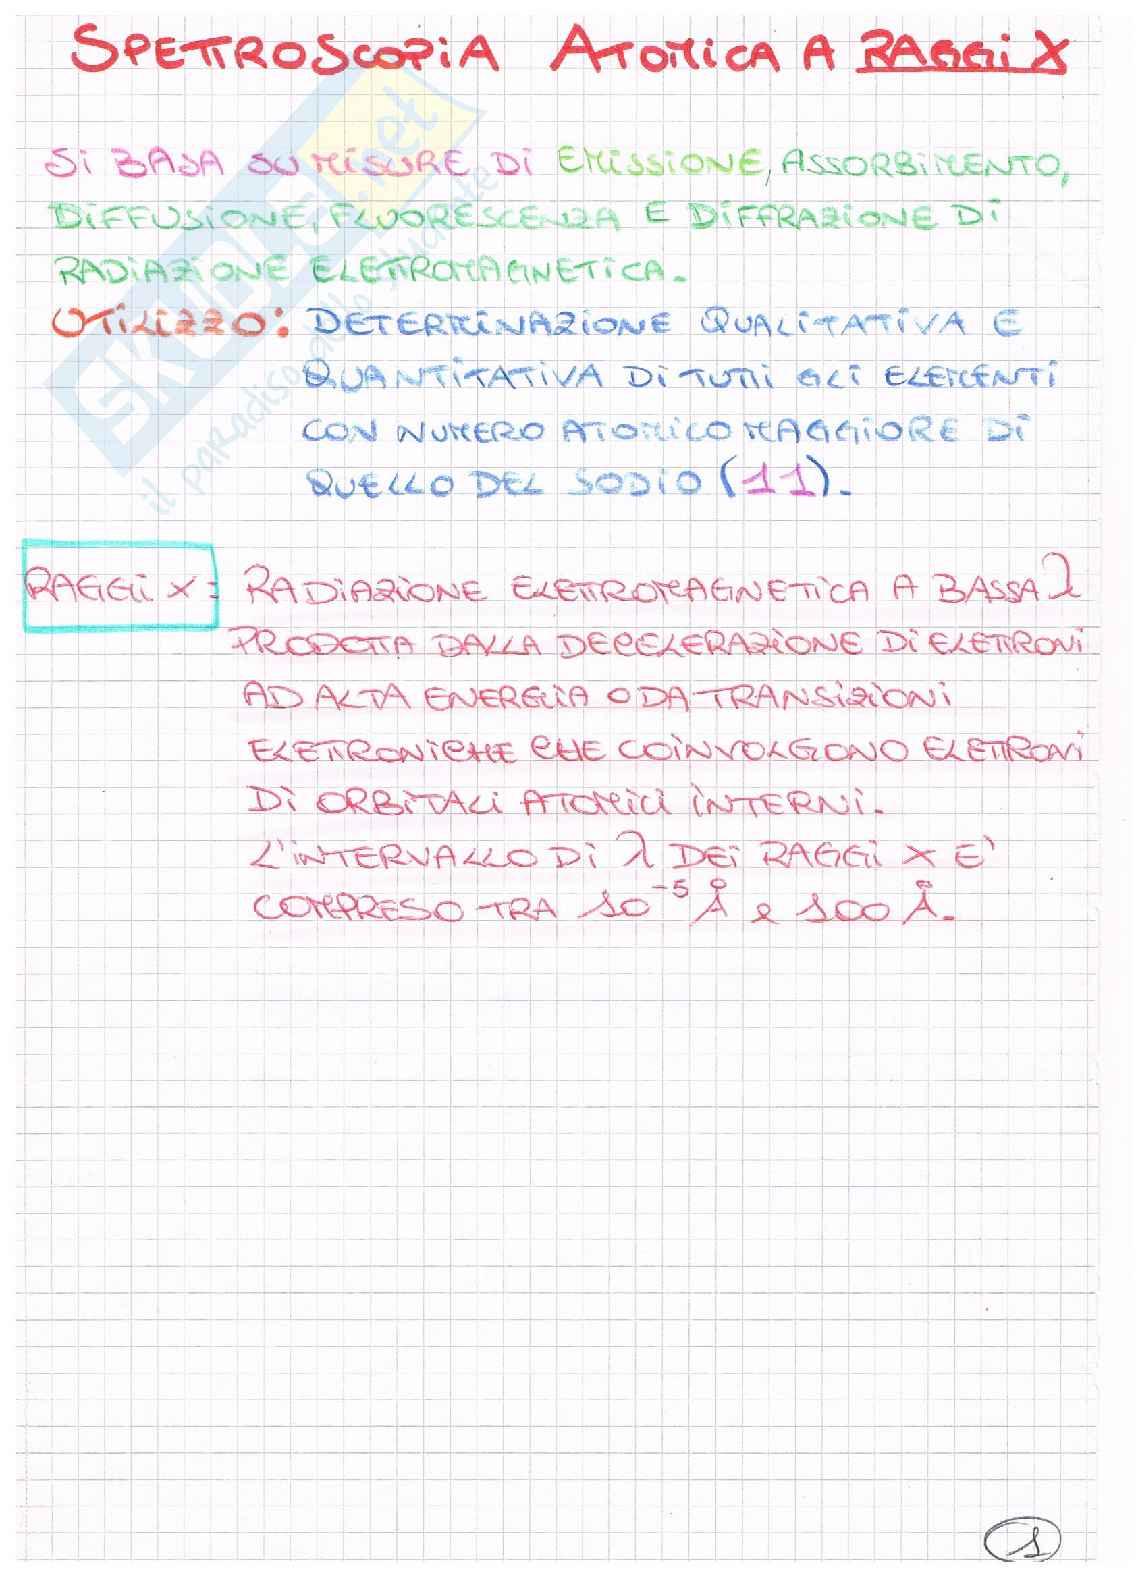 SPETTROSCOPIA ATOMICA A RAGGI X
SI BASA SU MISURE DI EMISSIONE, ASSORBIMENTO,
DIFFUSIONE, FLUORESCENZA E DIFFRAZIONE DI
RADIAZIONE ELETTROMAGNETICA.
UTILIZZO: DETERMINAZIONE QUALITATIVA E
QUANTITATIVA DI TUTTI GLI ELEMENTI
CON NUMERO ATOMICO MAGGIORE DI
QUELLO DEL SODIO (11).
RAGGI X: RADIAZIONE ELETTROMAGNETICA A BASSA λ
PRODOTTA DALLA DECELERAZIONE DI ELETTRONI
AD ALTA ENERGIA O DA TRANSIZIONI
ELETTRONICHE CHE COINVOLGONO ELETTRONI
DI ORBITALI ATOMICI INTERNI.
L'INTERVALLO DI λ DEI RAGGI X E'
COMPRESO TRA 10⁻⁵ Å e 100 Å.
1
SKUOLA.net
il paradiso dello studente